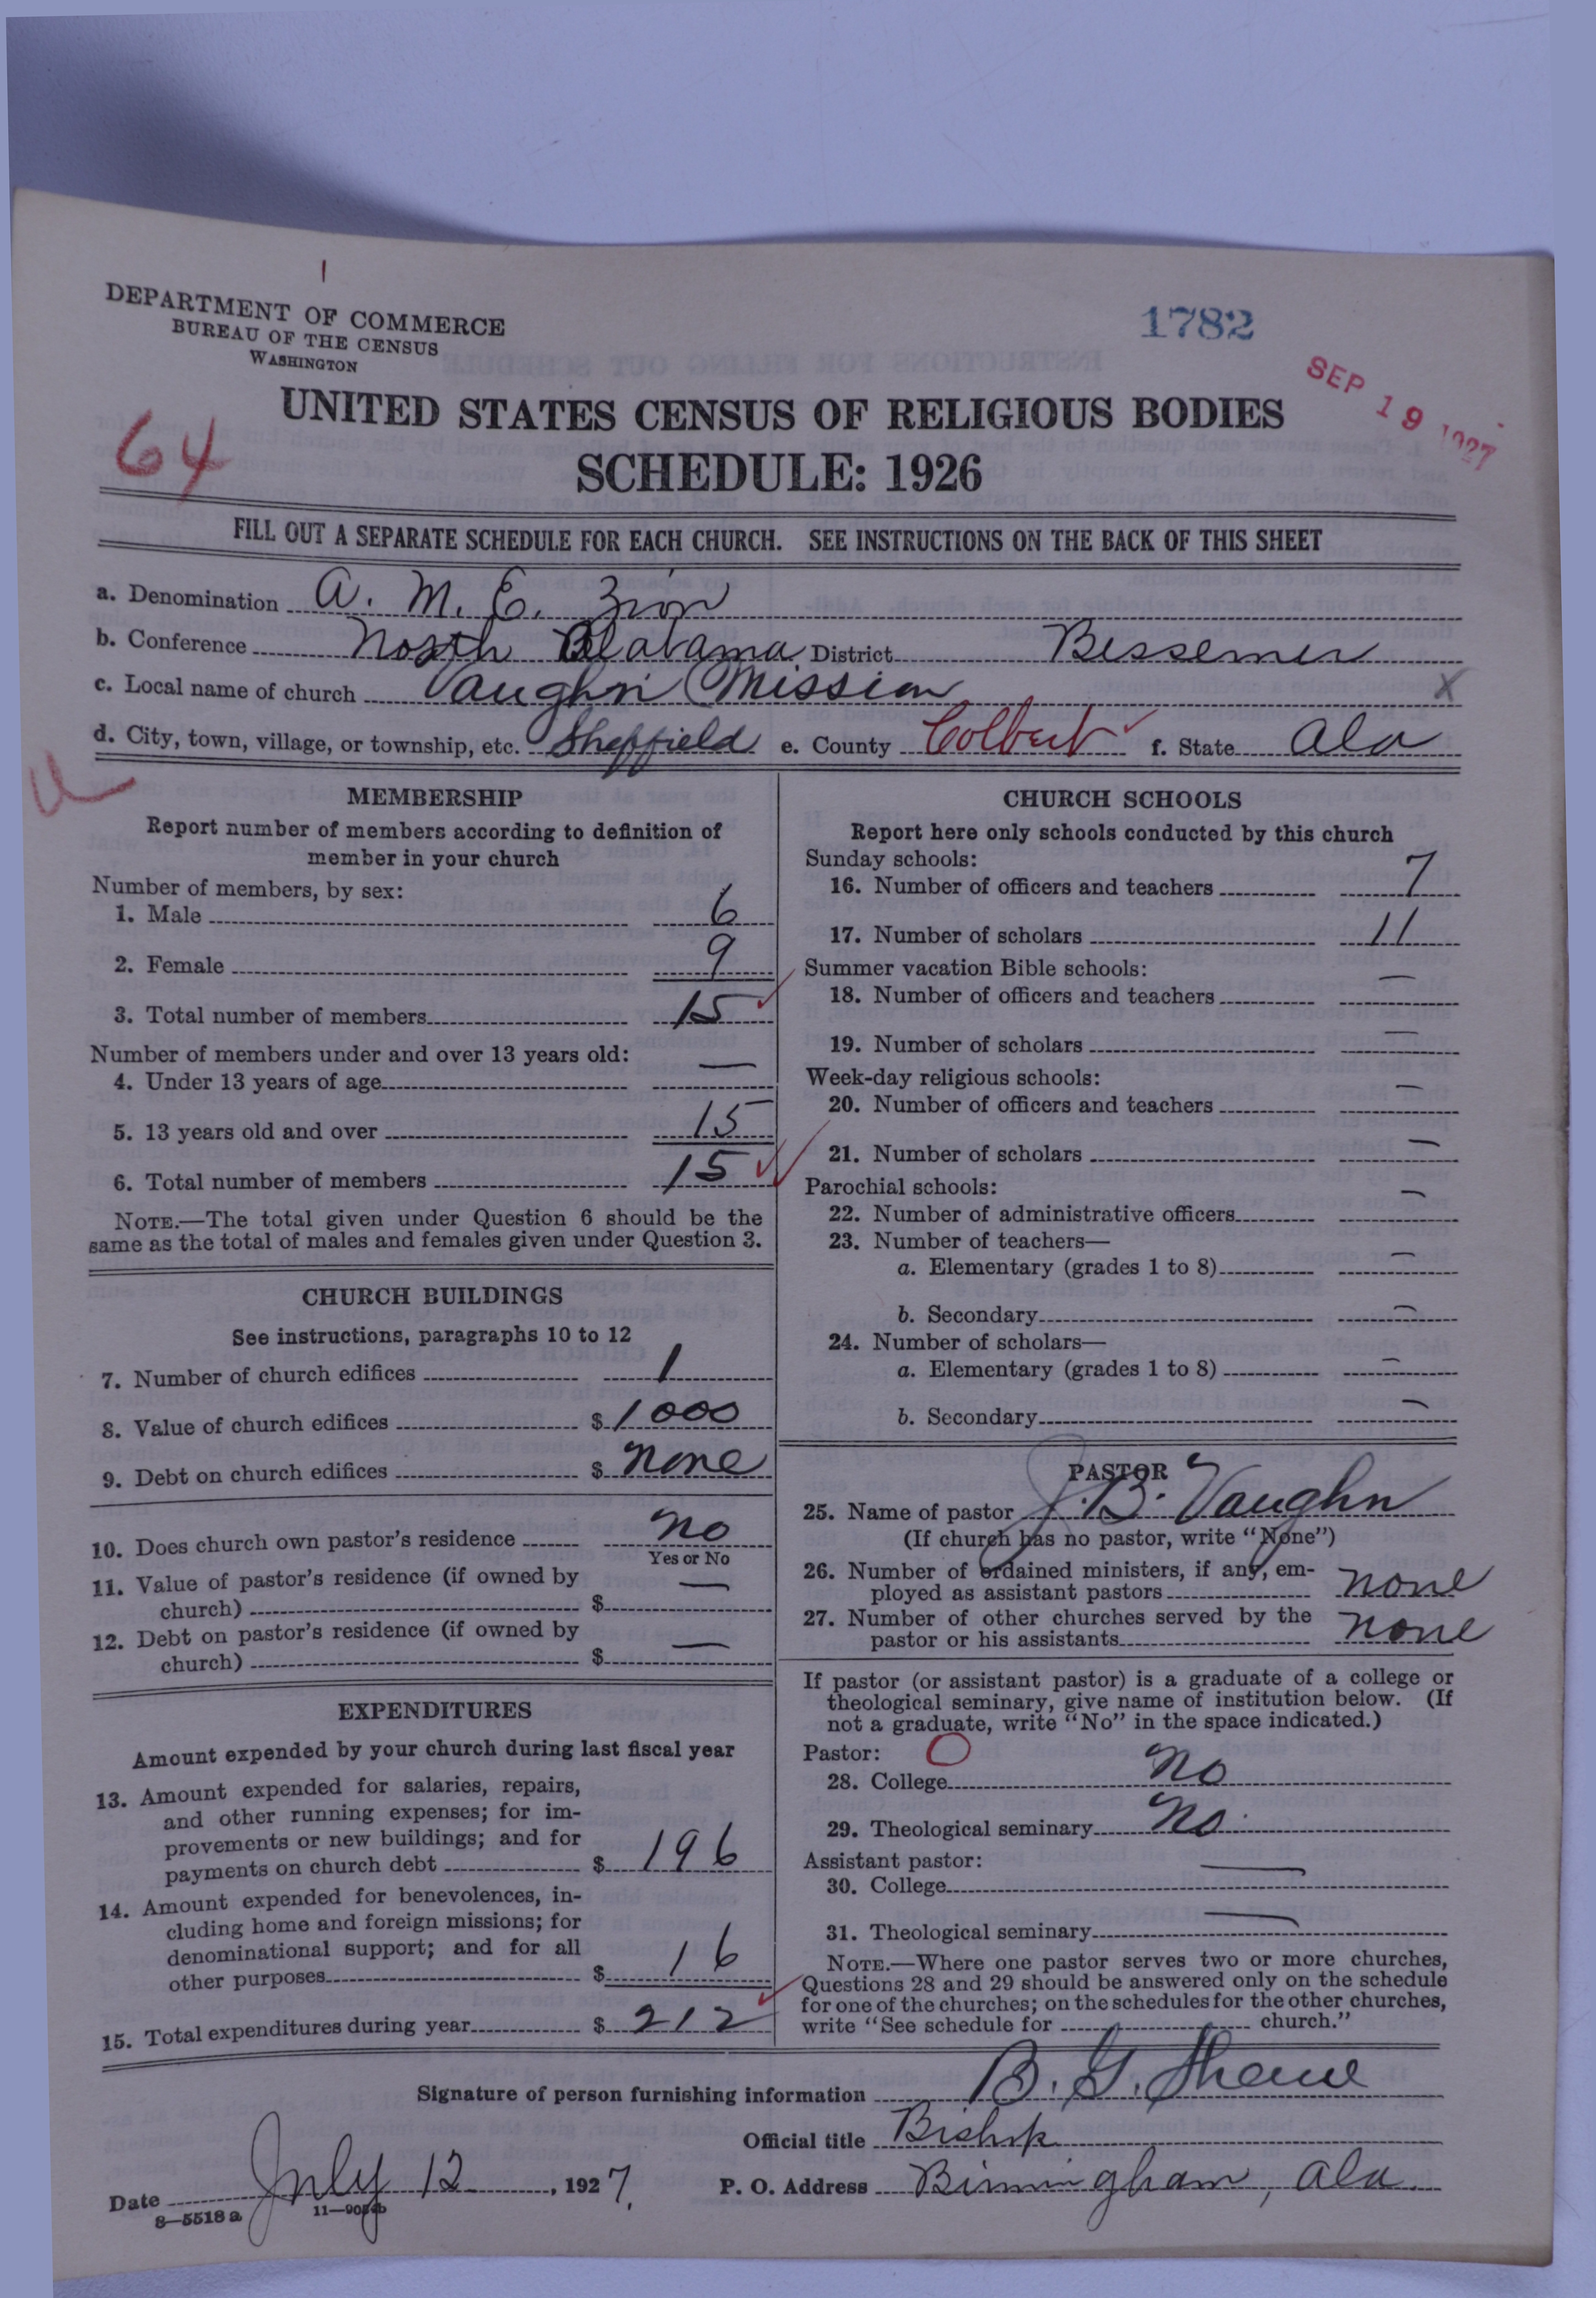 DEPARTMENT OF COMMERCE
BUREAU OF THE CENSUS
WASHINGTON
1782
SEP 19 1927
64
UNITED STATES CENSUS OF RELIGIOUS BODIES
SCHEDULE: 1926
FILL OUT A SEPARATE SCHEDULE FOR EACH CHURCH. SEE INSTRUCTIONS ON THE BACK OF THIS SHEET
a. Denomination A. M. E. Zion
b. Conference North Alabama District Bessemer
c. Local name of church Vaughn Mission X
d. City, town, village, or township, etc. Sheffield e. County Colbert f. State Ala
MEMBERSHIP
Report number of members according to definition of
member in your church
Number of members, by sex:
1. Male 6
2. Female 9
3. Total number of members 15
Number of members under and over 13 years old:
4. Under 13 years of age —
5. 13 years old and over 15
6. Total number of members 15
NOTE.—The total given under Question 6 should be the
same as the total of males and females given under Question 3.
CHURCH BUILDINGS
See instructions, paragraphs 10 to 12
7. Number of church edifices 1
8. Value of church edifices $ 1000
9. Debt on church edifices $ none
10. Does church own pastor's residence no
Yes or No
11. Value of pastor's residence (if owned by
church) $ —
12. Debt on pastor's residence (if owned by
church) $ —
EXPENDITURES
Amount expended by your church during last fiscal year
13. Amount expended for salaries, repairs,
and other running expenses; for im-
provements or new buildings; and for
payments on church debt $ 196
14. Amount expended for benevolences, in-
cluding home and foreign missions; for
denominational support; and for all
other purposes $ 16
15. Total expenditures during year $ 212
CHURCH SCHOOLS
Report here only schools conducted by this church
Sunday schools:
16. Number of officers and teachers 7
17. Number of scholars 11
Summer vacation Bible schools:
18. Number of officers and teachers —
19. Number of scholars —
Week-day religious schools:
20. Number of officers and teachers —
21. Number of scholars —
Parochial schools:
22. Number of administrative officers —
23. Number of teachers—
a. Elementary (grades 1 to 8) —
b. Secondary —
24. Number of scholars—
a. Elementary (grades 1 to 8) —
b. Secondary —
PASTOR
25. Name of pastor J. B. Vaughn
(If church has no pastor, write "None")
26. Number of ordained ministers, if any, em-
ployed as assistant pastors none
27. Number of other churches served by the
pastor or his assistants none
If pastor (or assistant pastor) is a graduate of a college or
theological seminary, give name of institution below. (If
not a graduate, write "No" in the space indicated.)
Pastor: O
28. College No
29. Theological seminary No
Assistant pastor:
30. College —
31. Theological seminary —
NOTE.—Where one pastor serves two or more churches,
Questions 28 and 29 should be answered only on the schedule
for one of the churches; on the schedules for the other churches,
write "See schedule for church."
Signature of person furnishing information B. G. Shaw
Official title Bishop
Date July 12, 1927. P. O. Address Birmingham, Ala.
8—5518 a